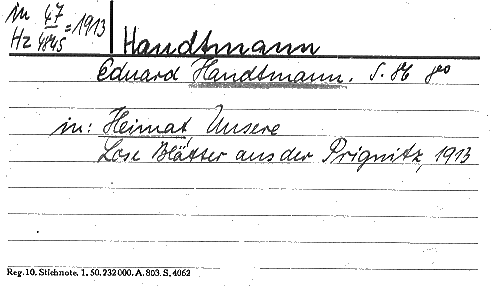 in 47
Hz 4845 = 1913
Handtmann
Eduard Handtmann. S. 86
in: Heimat, Unsere
Lose Blätter aus der Prignitz, 1913
Reg. 10. Stichnote. 1. 50. 232000. A. 803. S. 4062